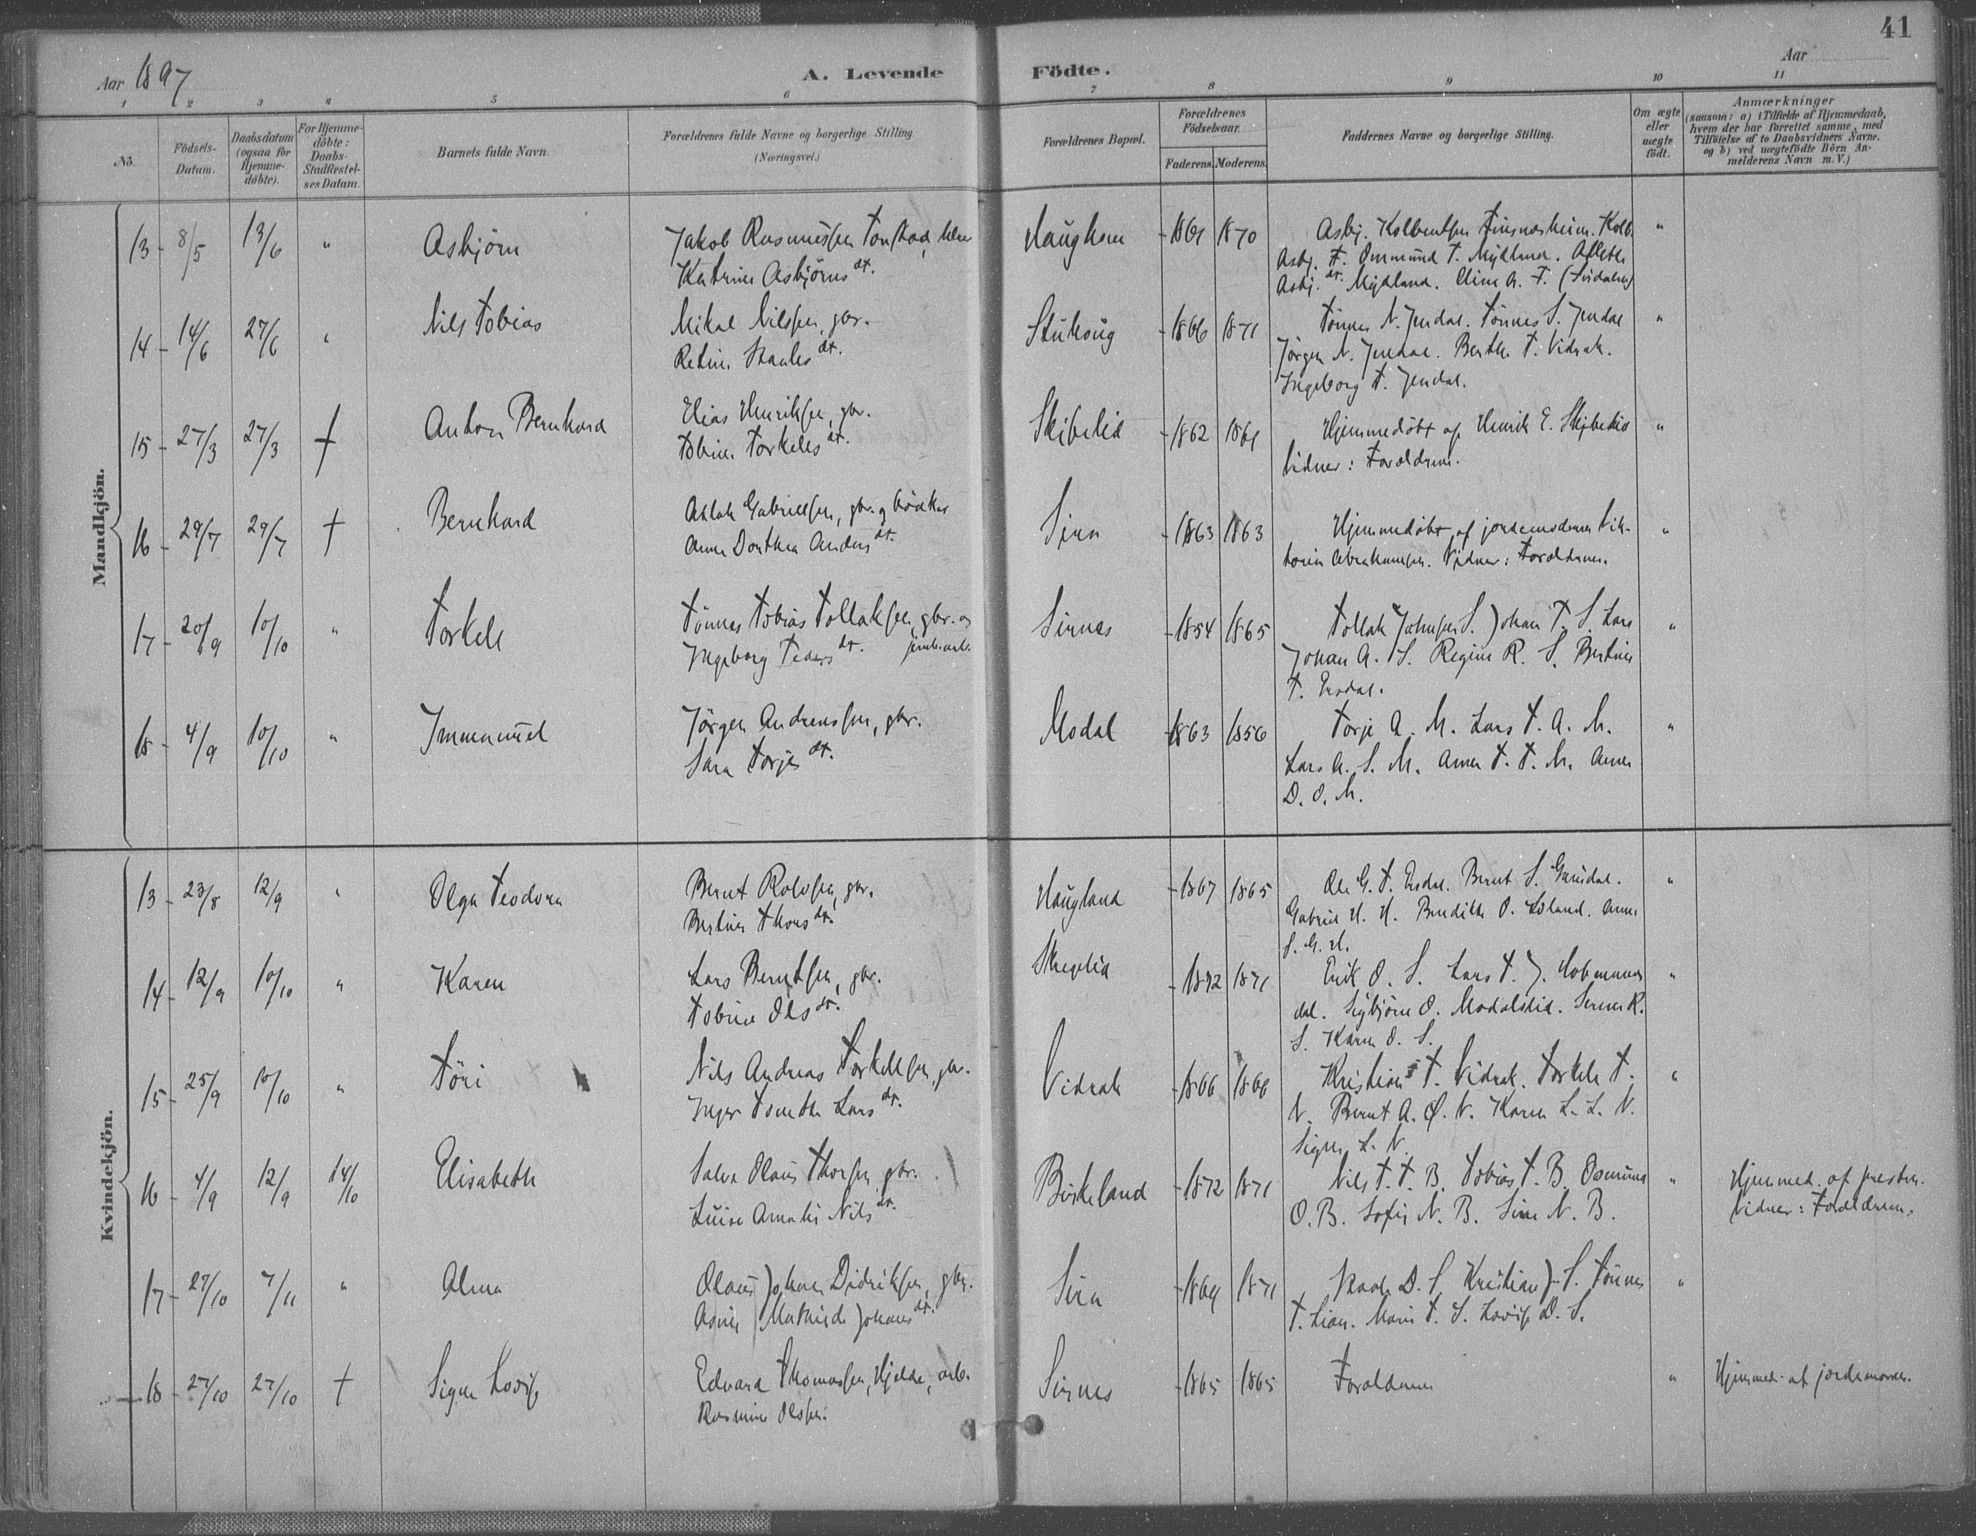 41
Aar 1897
A. Levende Födte.
Aar
1 2 3 4 5 6 7 8 9 10 11
No.
Födsels-Datum.
Daabsdatum (ogsaa for Hjemme-döbte).
For Hjemme-döbte: Daabs-Stadfæstel-ses Datum.
Barnets fulde Navn.
Forældrenes fulde Navne og borgerlige Stilling.
(Næringsvei.)
Forældrenes Bopæl.
Forældrenes Födselsaar.
Faderens. Moderens.
Faddernes Navne og borgerlige Stilling.
Om ægte eller uægte födt.
Anmærkninger
(saasom: a) i Tilfælde af Hjemmedaab,
hvem der har forrettet samme, med
Tilföielse af to Daabsvidners Navne.
og b) ved uægtefödte Börn An-
melderens Navn m. V.)
Mandkjön.
13 - 8/5 13/6 " Asbjörn Jakob Rasmussen Tonstad Haughom - 1869 1870 Asbj. "
Katrine Asbjörns dt. Asbj. T. Ommund T. Mydland.
Asbj. dt. Mydland. Eline A. T. (Sirdalen)
14 - 14/6 27/6 " Nils Tobias Mikal Nilssen, gbr. - 1866 1871 Tönnes N. Jendal. Tönnes S. Jendal "
dt. Jörgen N. Jendal. Berthe T. Vidrak.
Ingeborg T. Jendal.
15 - 27/3 27/3 † Anton Bernhard Elias Henriksen, gbr. Skibelid - 1862 1869 Hjemmedöbt af Henrik E. "
Tobine Torkels dt. Vidner: Forældrene.
16 - 29/7 29/7 † Bernhard Aslak Gabrielsen, gbr. og bödker Sira - 1863 1863 Hjemmedöbt af jordemoderen Vik- "
Anne Dorthea Anders dt. toria Abrahamsen. Vidner: Forældrene.
17 - 20/9 10/10 " Torkel Tönnes Tobias Tollaksen, gbr. og Sirnes - 1854 1865 Tollak Johnsen S. Johan T. S. Lars "
Ingeborg dt. Johan A. S. Regine R. S. Bertine
T. Ersdal.
18 - 4/9 10/10 " Immanuel Jörgen Andreassen, gbr. Modal - 1863 1856 Torje A. M. Lars T. A. M. "
Sara Torjes dt. Lars A. S. M. Anne T. T. M. Anne
D. O. M.
Kvindekjön.
13 - 23/8 12/9 " Olga Teodora Bernt Rolvsen, gbr. Haugland - 1867 1865 Ole G. T. Ersdal. Bernt S. "
Bertine Thors dt. Gabriel H. H. O. Anne
S. G. H.
14 - 12/9 10/10 " Karen Lars Berntsen, gbr. - 1872 1871 Erik O. S. Lars T. J. "
Tobine Ols dt. dal. Sigbjörn O. Modalslid. Serine R.
S. Karen O. S.
15 - 25/9 10/10 " Töri Nils Andreas Torkelsen, gbr. Vidrak - 1866 1868 Kristian T. Vidrak. Torkel T. "
Inger Lars dt. V. Bernt A. Ö. V. Karen L. L. V.
Signe L. V.
16 - 4/9 12/9 14/10 Elisabeth Salve Olaus Thorsen, gbr. Birkeland - 1872 1871 Nils T. T. B. Tobias T. B. Osmund " Hjemmed. af presten.
Luise Amalie Nils dt. O. B. Sofie N. B. Sine N. B. Vidner: Forældrene.
17 - 27/10 7/11 " Alma Olaus Johan Didriksen, gbr. Sira - 1869 1871 D. S. Kristian J. S. Tönnes "
Mathilde Johans dt. T. Lian. Marie T. S. Lovise D. S.
18 - 27/10 27/10 † Signe Lovise Edvard Thomassen, Hjelde, arb. Sirnes - 1865 1865 Forældrene " Hjemmed. af jordemoren.
Rasmine Olsen.